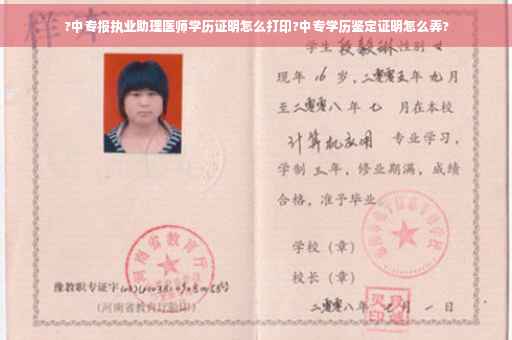 ?中专报执业助理医师学历证明怎么打印?中专学历鉴定证明怎么弄?
样本
学生段毅琳性别女
现年16岁,二零零五年九月
至二零零八年七月在本校
计算机应用 专业学习,
学制三年,修业期满,成绩
合格,准予毕业
学校(章)
校长(章)
二零零八年七月一日
河南省教育厅
豫教职专证字
(河南省教育厅验印)